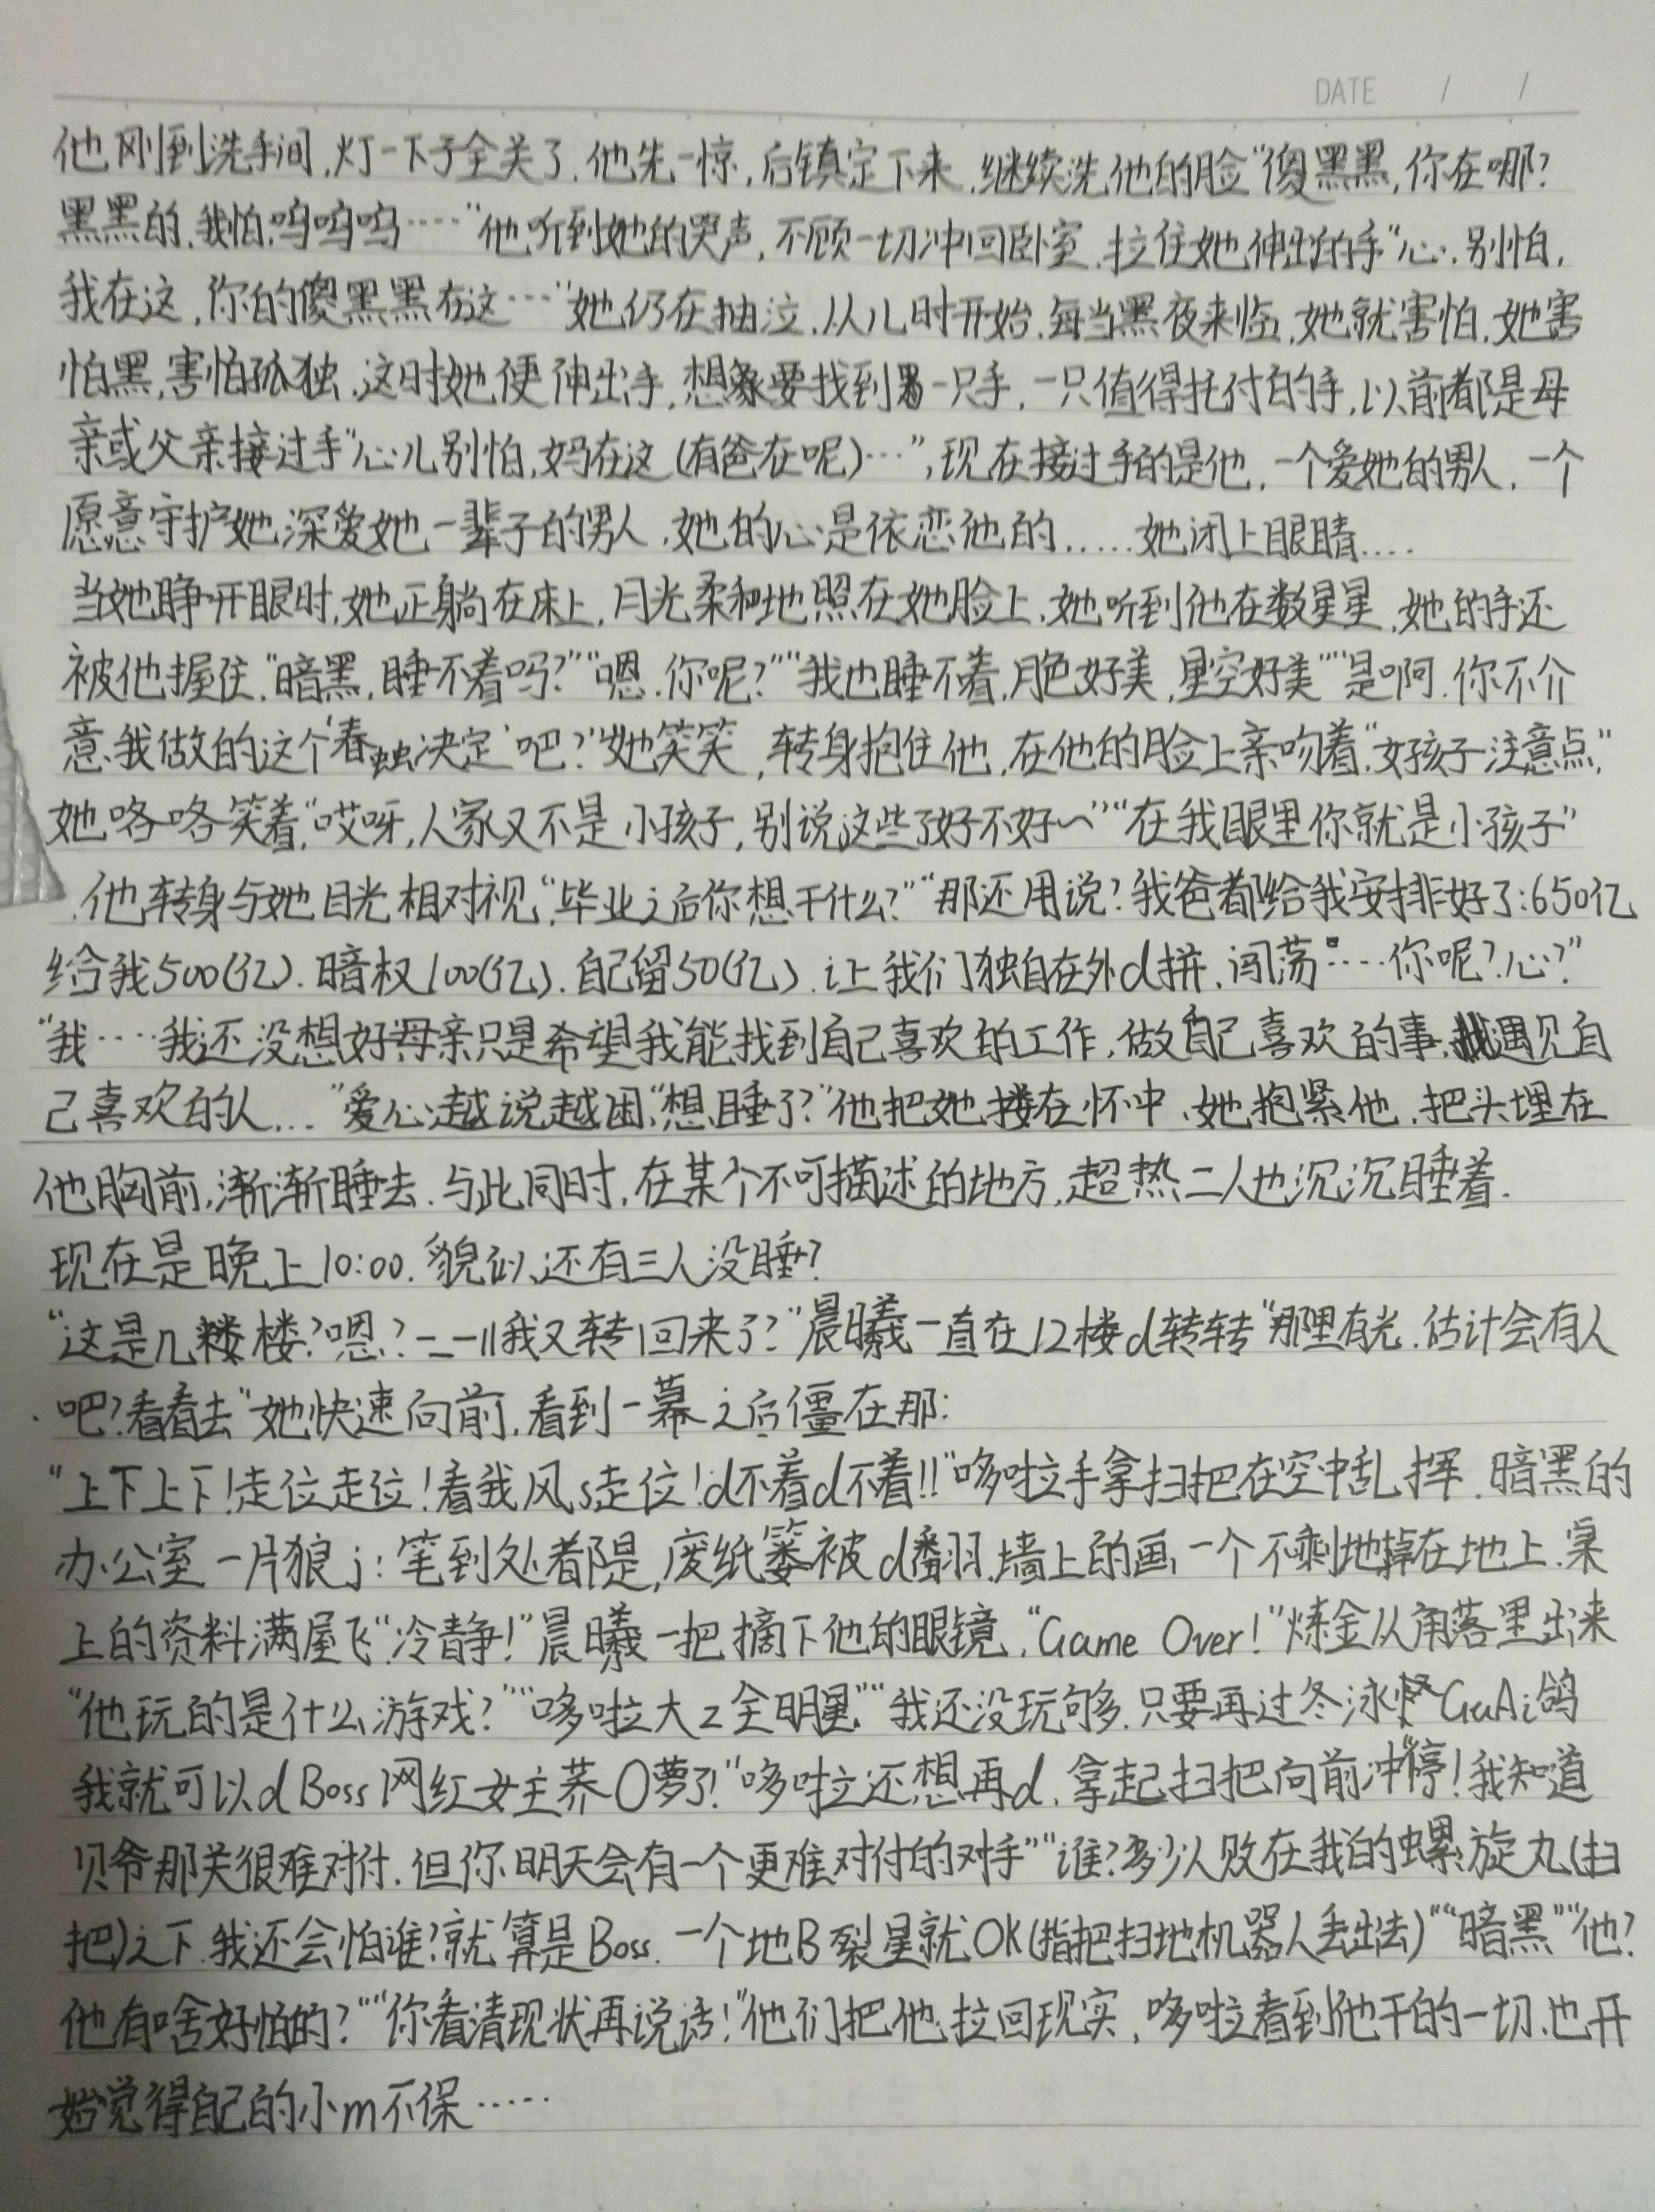 DATE / /
他刚到洗手间,灯一下子全关了.他先一惊,后镇定下来,继续洗他的脸“傻黑黑,你在哪?
黑黑的,我怕,呜呜呜……”他听到她的哭声,不顾一切冲回卧室,拉住她伸出的手“心,别怕,
我在这,你的傻黑黑在这…”她仍在抽泣,从儿时开始,每当黑夜来临,她就害怕,她害
怕黑,害怕孤独,这时她便伸出手,想要找到另一只手,一只值得托付的手,以前都是母
亲或父亲接过手“心儿别怕,妈在这(有爸在呢)…”,现在接过手的是他,一个爱她的男人,一个
愿意守护她,深爱她一辈子的男人,她的心是依恋他的……她闭上眼睛….
当她睁开眼时,她正躺在床上,月光柔和地照在她脸上,她听到他在数星星,她的手还
被他握住,“暗黑,睡不着吗?”“嗯.你呢?”“我也睡不着,月色好美,星空好美”“是啊.你不介
意我做的这个‘春虫虫决定’吧?”她笑笑,转身抱住他,在他的脸上亲吻着.“女孩子注意点,”
她咯咯笑着,“哎呀,人家又不是小孩子,别说这些了好不好~”“在我眼里你就是小孩子”
.他转身与她目光相对视,“毕业之后你想干什么?”“那还用说?我爸都给我安排好了:650亿
给我500(亿).暗权100(亿).自己留50(亿).让我们独自在外d拼,闯荡….你呢?心?”
“我….我还没想好母亲只是希望我能找到自己喜欢的工作,做自己喜欢的事,遇见自
己喜欢的人…”爱心越说越困,“想睡了?”他把她搂在怀中,她抱紧他,把头埋在
他胸前,渐渐睡去.与此同时,在某个不可描述的地方,超热二人也沉沉睡着.
现在是晚上10:00.貌似还有三人没睡?
“这是几楼?嗯?=_=||我又转回来了?”晨曦一直在12楼d转转“那里有光.估计会有人
吧?看看去”她快速向前,看到一幕之后僵在那:
“上下上下!走位走位!看我风s走位!d不着d不着!!”哆啦手拿扫把在空中乱挥.暗黑的
办公室一片狼j:笔到处都是,废纸篓被d翻,墙上的画一个不剩地掉在地上.桌
上的资料满屋飞“冷静!”晨曦一把摘下他的眼镜,“Game Over!”炼金从角落里出来
“他玩的是什么游戏?”“哆啦大z全明星”“我还没玩够.只要再过冬泳怪GuAi鸽
我就可以d Boss网红女主荞O萝了!”哆啦还想再d,拿起扫把向前冲“停!我知道
贝爷那关很难对付.但你明天会有一个更难对付的对手”“谁?多少人败在我的螺旋丸(扫
把)之下.我还会怕谁?就算是Boss.一个地B裂星就OK(指把扫地机器人丢出去)”“暗黑”“他?
他有啥好怕的?”“你看清现状再说话!”他们把他拉回现实,哆啦看到他干的一切,也开
始觉得自己的小m不保……